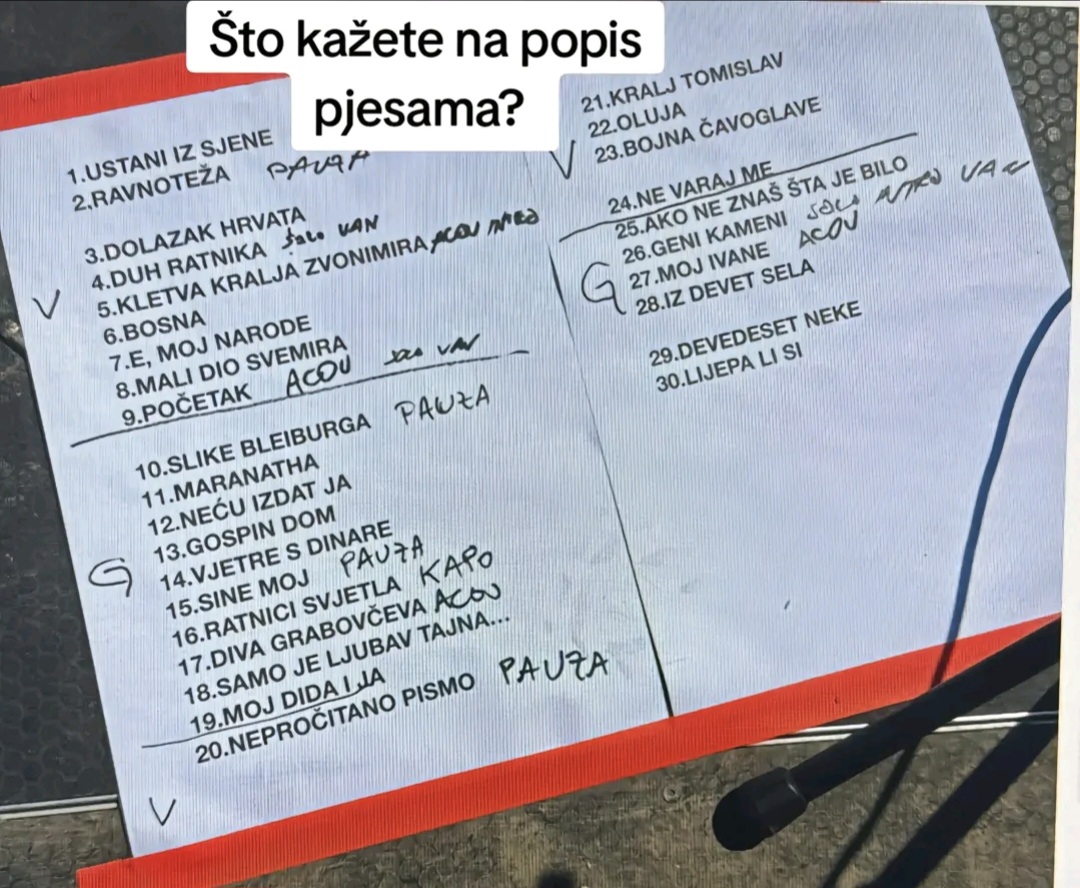 Što kažete na popis
pjesama?
1.USTANI IZ SJENE
2.RAVNOTEŽA PAUZA
3.DOLAZAK HRVATA
4.DUH RATNIKA solo VAN
5.KLETVA KRALJA ZVONIMIRA ACOU INTRO
V
6.BOSNA
7.E, MOJ NARODE
8.MALI DIO SVEMIRA
9.POČETAK ACOU solo VAN
10.SLIKE BLEIBURGA PAUZA
11.MARANATHA
12.NEĆU IZDAT JA
13.GOSPIN DOM
G
14.VJETRE S DINARE
15.SINE MOJ PAUZA
16.RATNICI SVJETLA KAPO
17.DIVA GRABOVČEVA ACOU
18.SAMO JE LJUBAV TAJNA...
19.MOJ DIDA I JA
20.NEPROČITANO PISMO PAUZA
V
21.KRALJ TOMISLAV
22.OLUJA
23.BOJNA ČAVOGLAVE
V
24.NE VARAJ ME
25.AKO NE ZNAŠ ŠTA JE BILO
26.GENI KAMENI solo INTRO VAN
G
27.MOJ IVANE ACOU
28.IZ DEVET SELA
29.DEVEDESET NEKE
30.LIJEPA LI SI